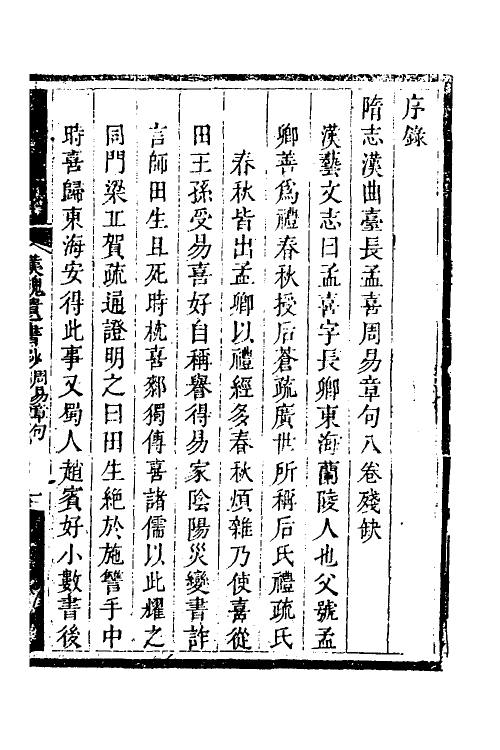 序錄
隋志漢曲臺長孟喜周易章句八卷殘缺
漢藝文志曰孟喜字長卿東海蘭陵人也父號孟
卿善爲禮春秋授后蒼疏廣世所稱后氏禮疏氏
春秋皆出孟卿以禮經多春秋煩雜乃使喜從
田王孫受易喜好自稱譽得易家陰陽災變書詐
言師田生且死時枕喜厀獨傳喜諸儒以此耀之
同門梁丘賀疏通證明之曰田生絶於施讐手中
時喜歸東海安得此事又蜀人趙賓好小數書後
漢魏遺書鈔周易章句